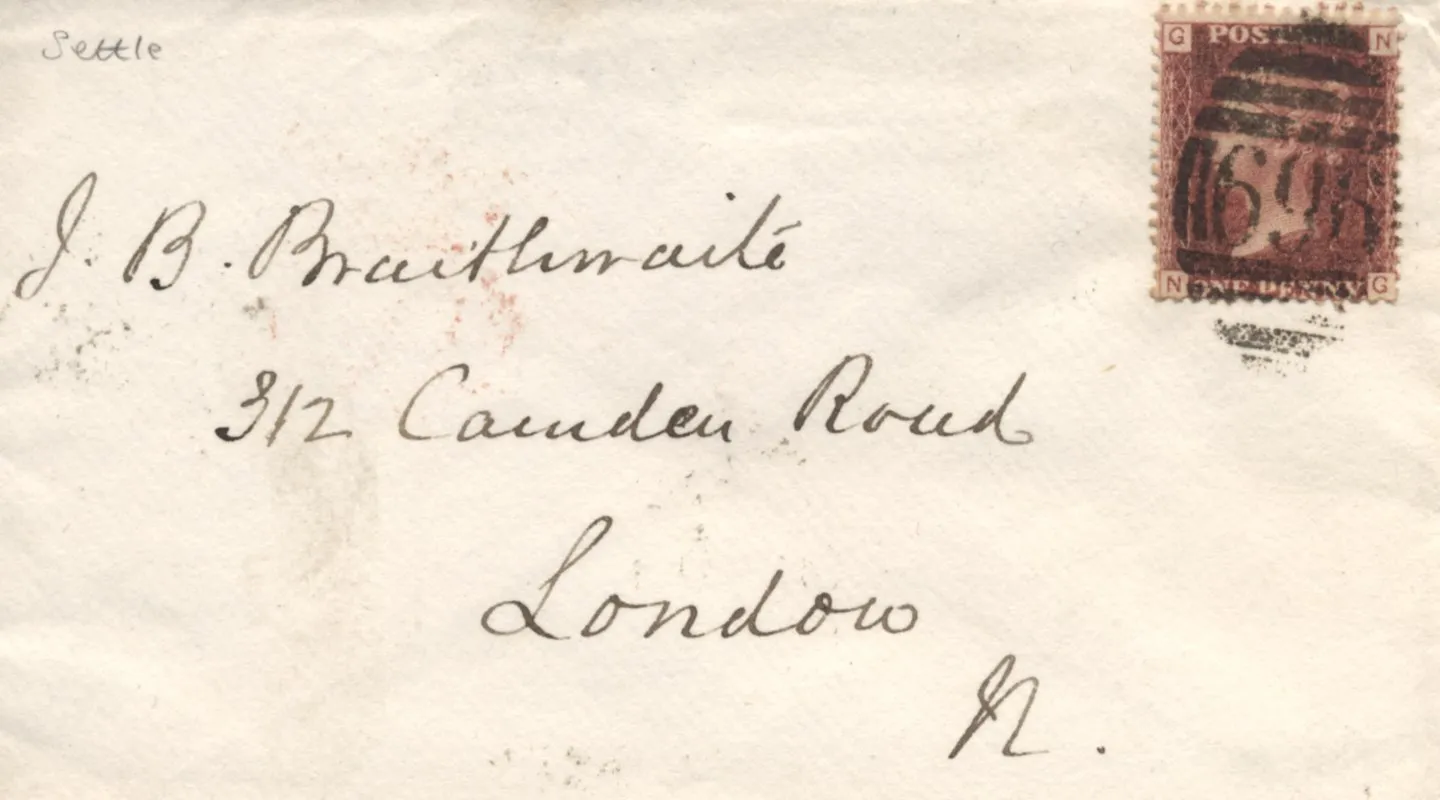 Settle
G POST N
698
N ONE PENNY G
J. B. Braithwaite
312 Camden Road
London
N.